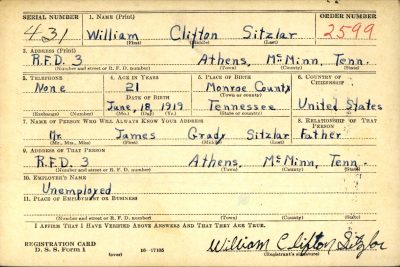 SERIAL NUMBER 1. NAME (Print) ORDER NUMBER
431 William Clifton Sitzlar 2599
(First) (Middle) (Last)
2. ADDRESS (Print)
R.F.D. 3 Athens, McMinn, Tenn.
(Number and street or R. F. D. number) (Town) (County) (State)
3. TELEPHONE 4. AGE IN YEARS 5. PLACE OF BIRTH 6. COUNTRY OF CITIZENSHIP
None 21 Monroe County
DATE OF BIRTH (Town or county)
June 18, 1919 Tennessee United States
(Exchange) (Number) (Mo.) (Day) (Yr.) (State or country)
7. NAME OF PERSON WHO WILL ALWAYS KNOW YOUR ADDRESS 8. RELATIONSHIP OF THAT PERSON
Mr. James Grady Sitzlar Father
(Mr., Mrs., Miss) (First) (Middle) (Last)
9. ADDRESS OF THAT PERSON
R.F.D. 3 Athens, McMinn, Tenn.
(Number and street or R. F. D. number) (Town) (County) (State)
10. EMPLOYER'S NAME
Unemployed
11. PLACE OF EMPLOYMENT OR BUSINESS
(Number and street or R. F. D. number) (Town) (County) (State)
I AFFIRM THAT I HAVE VERIFIED ABOVE ANSWERS AND THAT THEY ARE TRUE.
REGISTRATION CARD William Clifton Sitzlar
D. S. S. Form 1 (over) 16-17105 (Registrant's signature)